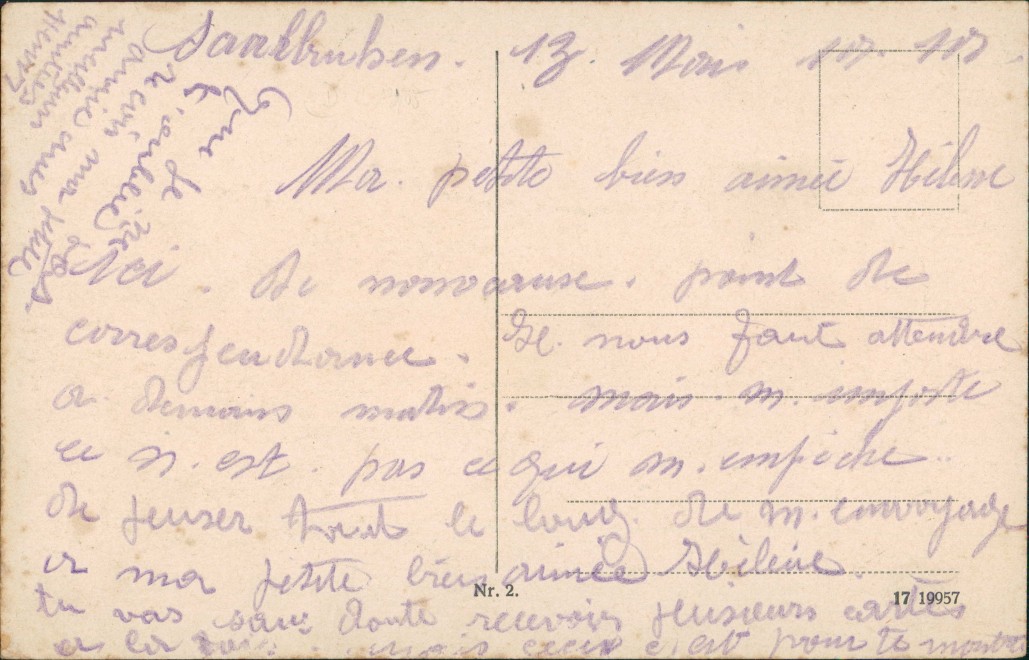 Saarbruken. 13. Mai
Ma. petite bien aimée Hélène
Ici. de nouveause. point de
correspendance. Il. nous faut attendre
a. demains matin. mais. m. emporte
ce n. est. pas ce qui m. empêche..
de penser tout le long. de m. envoyage
a ma petite bien aimée Hélène.
tu vas sans doute recevoir plusieurs cartes
a la mais ceux c'est pour te montre
que je
t'oublie
ma petite
amie
Nr. 2.
17 19957